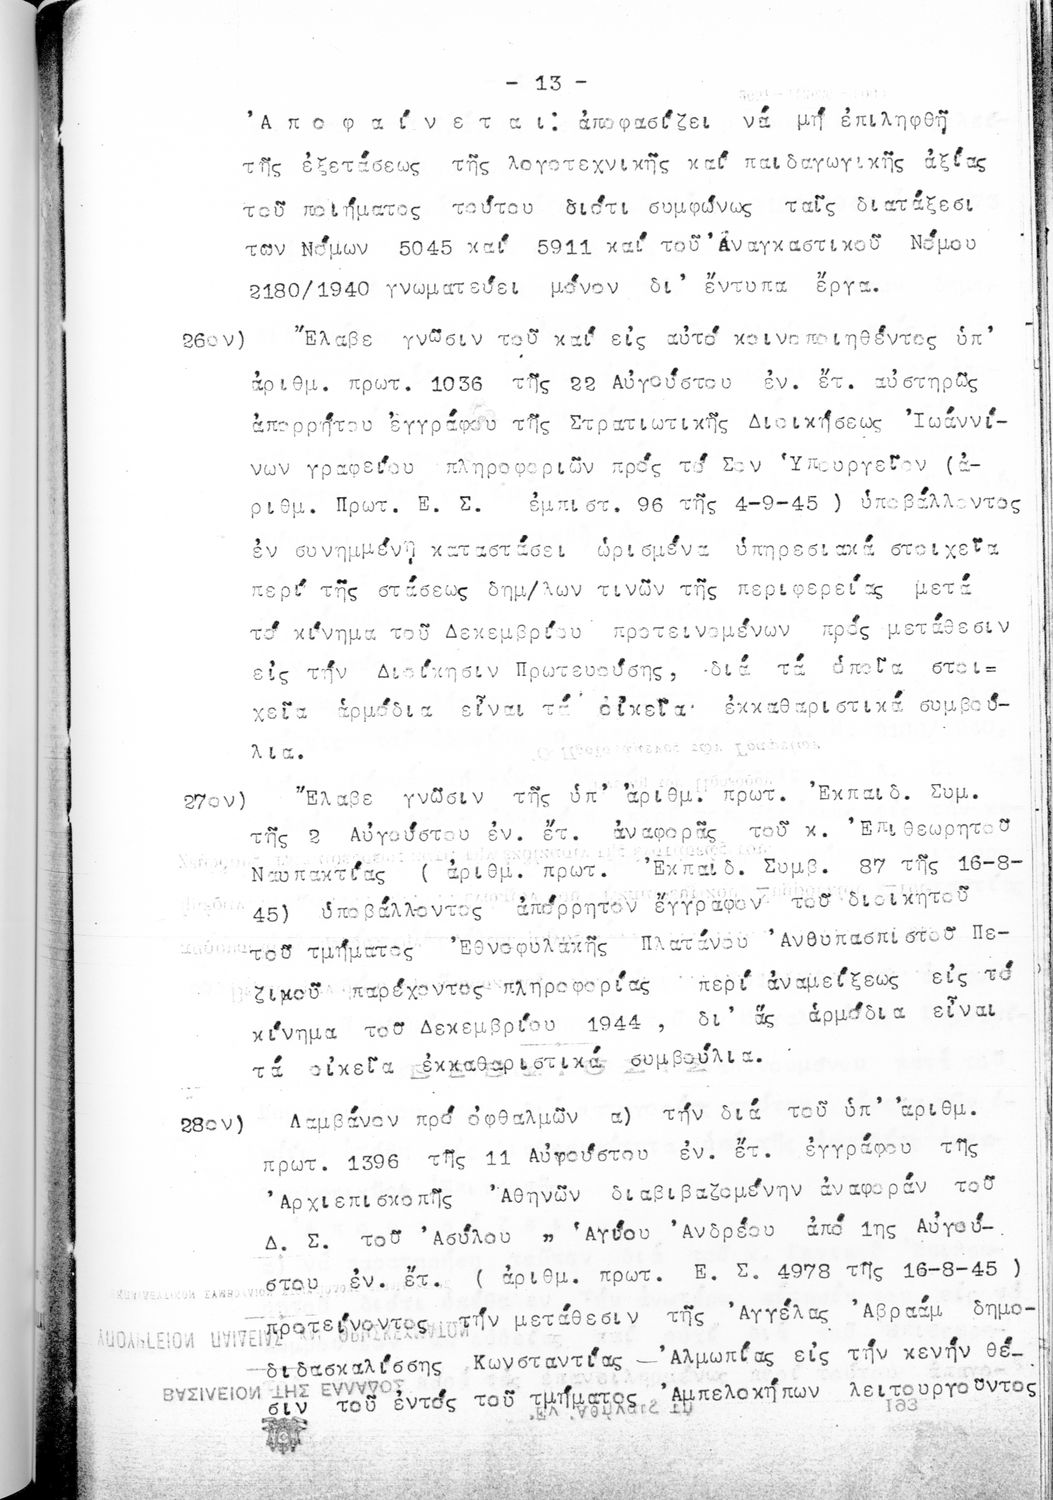 - 13 -
Ἀποφαίνεται: ἀποφασίζει νά μή ἐπιληφθῆ
τῆς ἐξετάσεως τῆς λογοτεχνικῆς καί παιδαγωγικῆς ἀξίας
τοῦ ποιήματος τούτου διότι συμφώνως ταῖς διατάξεσι
των Νόμων 5045 καί 5911 καί τοῦ Ἀναγκαστικοῦ Νόμου
2180/1940 γνωματεύει μόνον δι' ἔντυπα ἔργα.
26ον) Ἔλαβε γνῶσιν τοῦ καί εἰς αὐτό κοινοποιηθέντος ὑπ'
ἀριθμ. πρωτ. 1036 τῆς 22 Αὐγούστου ἐν. ἔτ. αὐστηρῶς
ἀπορρήτου ἐγγράφου τῆς Στρατιωτικῆς Διοικήσεως Ἰωάννί-
νων γραφείου πληροφοριῶν πρός τό Σον Ὑπουργεῖον (ἀ-
ριθμ. Πρωτ. Ε. Σ. ἐμπιστ. 96 τῆς 4-9-45 ) ὑποβάλλοντος
ἐν συνημμένῃ καταστάσει ὡρισμένα ὑπηρεσιακά στοιχεῖα
περί τῆς στάσεως δημ/λων τινῶν τῆς περιφερείας μετά
τό κίνημα τοῦ Δεκεμβρίου προτεινομένων πρός μετάθεσιν
εἰς τήν Διοίκησιν Πρωτευούσης, διά τά ὁποῖα στοι=
χεῖα ἁρμόδια εἶναι τά οἰκεῖα ἐκκαθαριστικά συμβού-
λια.
27ον) Ἔλαβε γνῶσιν τῆς ὑπ' ἀριθμ. πρωτ. Ἐκπαιδ. Συμ.
τῆς 2 Αὐγούστου ἐν. ἔτ. ἀναφορᾶς τοῦ κ. Ἐπιθεωρητοῦ
Ναυπακτίας ( ἀριθμ. πρωτ. Ἐκπαιδ. Συμβ. 87 τῆς 16-8-
45) ὑποβάλλοντος ἀπόρρητον ἔγγραφον τοῦ διοικητοῦ
τοῦ τμήματος Ἐθνοφυλακῆς Πλατάνου Ἀνθυπασπιστοῦ Πε-
ζικοῦ παρέχοντος πληροφορίας περί ἀναμείξεως εἰς τό
κίνημα τοῦ Δεκεμβρίου 1944 , δι' ἅς ἁρμόδια εἶναι
τά οἰκεῖα ἐκκαθαριστικά συμβούλια.
28ον) Λαμβάνον πρό ὀφθαλμῶν α) τήν διά τοῦ ὑπ' ἀριθμ.
πρωτ. 1396 τῆς 11 Αὐγούστου ἐν. ἔτ. ἐγγράφου τῆς
Ἀρχιεπισκοπῆς Ἀθηνῶν διαβιβαζομένην ἀναφοράν τοῦ
Δ. Σ. τοῦ Ἀσύλου „ Ἁγίου Ἀνδρέου ἀπό 1ης Αὐγού-
στου ἐν. ἔτ. ( ἀριθμ. πρωτ. Ε. Σ. 4978 τῆς 16-8-45 )
προτείνοντος τήν μετάθεσιν τῆς Ἀγγέλας Ἀβραάμ δημο-
διδασκαλίσσης Κωνσταντίας – Ἀλμωπίας εἰς τήν κενήν θέ-
σιν τοῦ ἐντός τοῦ τμήματος Ἀμπελοκήπων λειτουργοῦντος